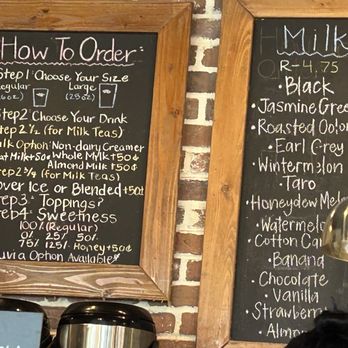 How To Order
Step1 Choose Your Size
Regular Large
Step2 Choose Your Drink
Step 2½ (for Milk Teas)
Milk Option: Non-dairy Creamer
Whole Mylk +50¢
Almond Milk +50¢
Step 2¾ (for Milk Teas)
Over Ice or Blended +50¢
Step 3 Toppings?
Step4 Sweetness
100% (Regular)
0% 25% 50%
75% 125% Honey +50¢
Available
Milk
R - 4.75
• Black
• Jasmine Gree
• Roasted Oolon
• Earl Grey
• Wintermelon
• Taro
• Honeydew Melo
• Watermelo
• Cotton Can
• Banana
• Chocolate
• Vanilla
• Strawberr
• Almon